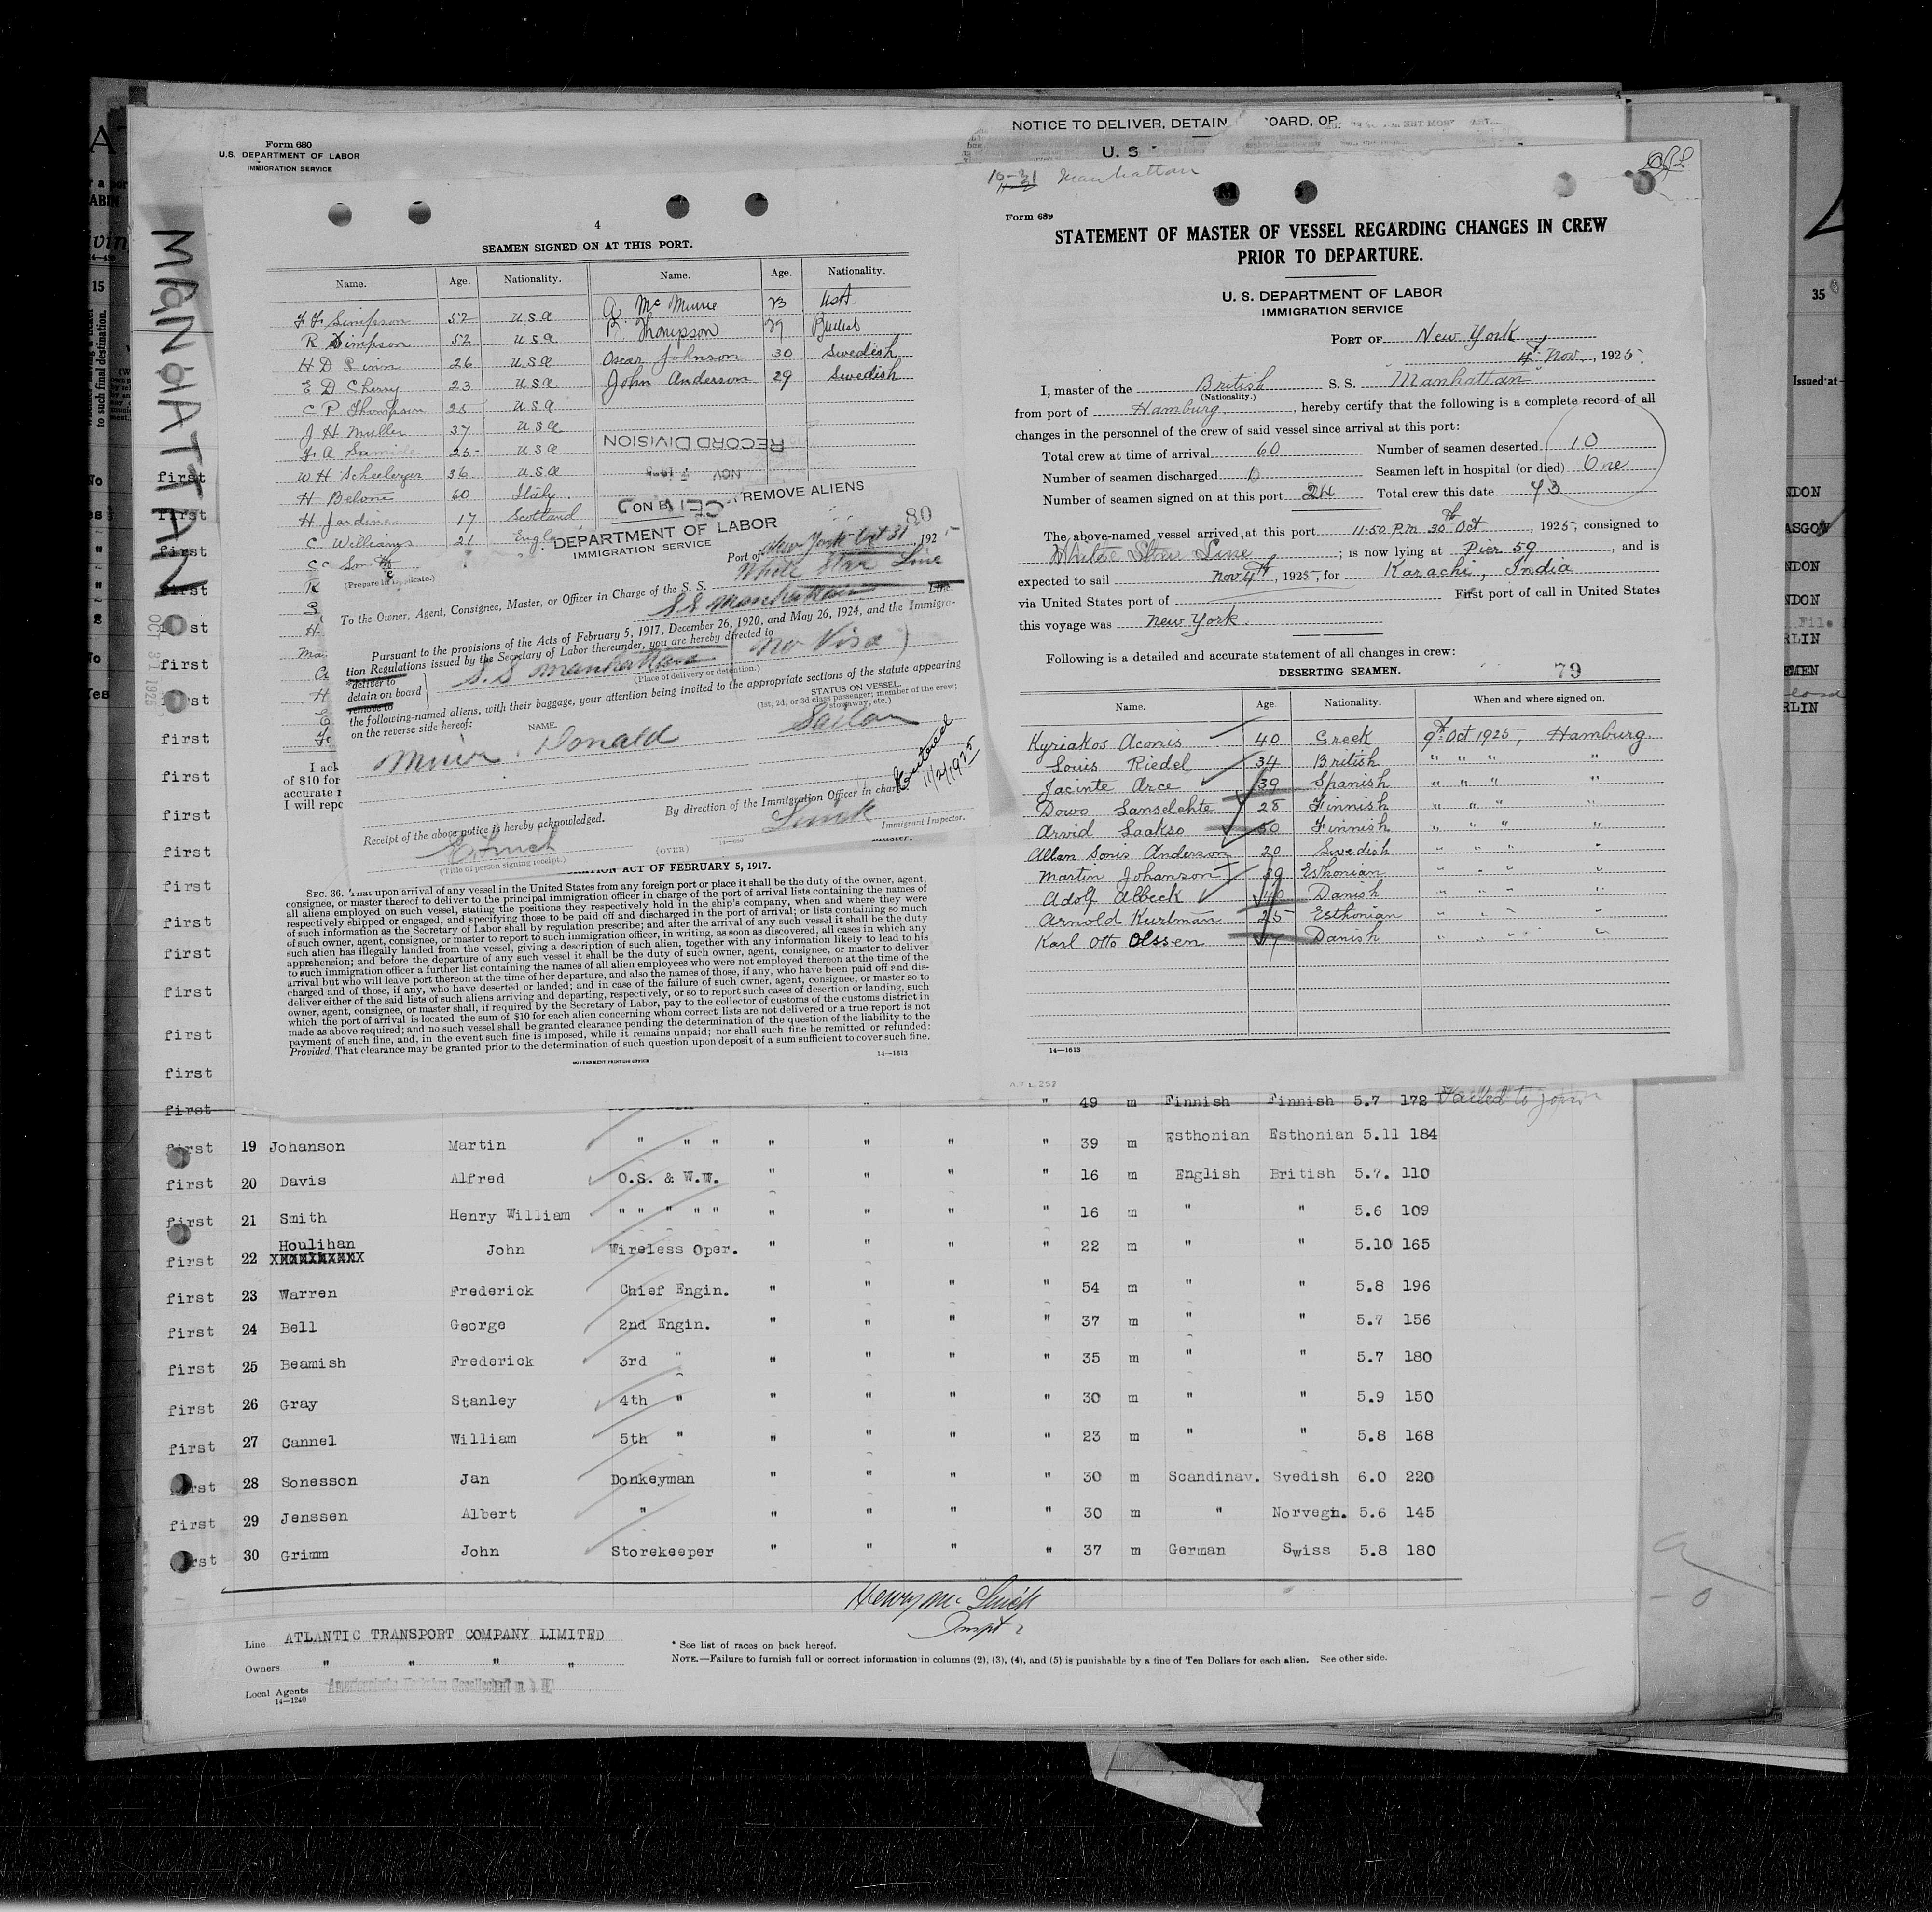 Form 680
U.S. DEPARTMENT OF LABOR
IMMIGRATION SERVICE
NOTICE TO DELIVER, DETAIN
OARD, OR
U. S
MANHATTAN
OCT 31 1925
4
SEAMEN SIGNED ON AT THIS PORT.
Name. Age. Nationality. Name. Age. Nationality.
F F Simpson 52 USA A McMurre 23 USA
R Simpson 52 USA R. Thompson 29
H D 26 USA Oscar Johnson 30 Swedish
E D Cherry 23 USA John Anderson 29 Swedish
C P Thompson 25 USA
J H Muller 37 USA
F. A 25 USA
W H 36 USA
H Belone 60 Italy
H Jardine 17 Scotland
C Williams 21 Engla
RECORD DIVISION
NOV
ON B REMOVE ALIENS
DEPARTMENT OF LABOR
IMMIGRATION SERVICE
80
Port of New York Oct 31, 1925
(Prepare in
White Star Line
To the Owner, Agent, Consignee, Master, or Officer in Charge of the S. S. Line.
SS Manhattan
Pursuant to the provisions of the Acts of February 5, 1917, December 26, 1920, and May 26, 1924, and the Immigra-
tion Regulations issued by the Secretary of Labor thereunder, you are hereby directed to
*deliver to
detain on board S.S Manhattan (No Visa)
remove to
(Place of delivery or detention.)
the following-named aliens, with their baggage, your attention being invited to the appropriate sections of the statute appearing
on the reverse side hereof:
NAME. STATUS ON VESSEL
(1st, 2d, or 3d class passenger; member of the crew;
stowaway, etc.)
Muir, Donald Sailor
11/2/1925
By direction of the Immigration Officer in charge
Receipt of the above notice is hereby acknowledged.
Immigrant Inspector.
(Title of person signing receipt.)
(OVER)
I ack
of $10 for
accurate r
I will repo
ACT OF FEBRUARY 5, 1917.
SEC. 36. That upon arrival of any vessel in the United States from any foreign port or place it shall be the duty of the owner, agent,
consignee, or master thereof to deliver to the principal immigration officer in charge of the port of arrival lists containing the names of
all aliens employed on such vessel, stating the positions they respectively hold in the ship's company, when and where they were
respectively shipped or engaged, and specifying those to be paid off and discharged in the port of arrival; or lists containing so much
of such information as the Secretary of Labor shall by regulation prescribe; and after the arrival of any such vessel it shall be the duty
of such owner, agent, consignee, or master to report to such immigration officer, in writing, as soon as discovered, all cases in which any
such alien has illegally landed from the vessel, giving a description of such alien, together with any information likely to lead to his
apprehension; and before the departure of any such vessel it shall be the duty of such owner, agent, consignee, or master to deliver
to such immigration officer a further list containing the names of all alien employees who were not employed thereon at the time of the
arrival but who will leave port thereon at the time of her departure, and also the names of those, if any, who have been paid off and dis-
charged and of those, if any, who have deserted or landed; and in case of the failure of such owner, agent, consignee, or master so to
deliver either of the said lists of such aliens arriving and departing, respectively, or so to report such cases of desertion or landing, such
owner, agent, consignee, or master shall, if required by the Secretary of Labor, pay to the collector of customs of the customs district in
which the port of arrival is located the sum of $10 for each alien concerning whom correct lists are not delivered or a true report is not
made as above required; and no such vessel shall be granted clearance pending the determination of the question of the liability to the
payment of such fine, and, in the event such fine is imposed, while it remains unpaid; nor shall such fine be remitted or refunded:
Provided, That clearance may be granted prior to the determination of such question upon deposit of a sum sufficient to cover such fine.
GOVERNMENT PRINTING OFFICE
14—1613
10-31 Manhattan
Form 689
STATEMENT OF MASTER OF VESSEL REGARDING CHANGES IN CREW
PRIOR TO DEPARTURE.
U. S. DEPARTMENT OF LABOR
IMMIGRATION SERVICE
PORT OF New York
4th Nov., 1925.
I, master of the British S. S. "Manhattan"
(Nationality.)
from port of Hamburg, hereby certify that the following is a complete record of all
changes in the personnel of the crew of said vessel since arrival at this port:
Total crew at time of arrival 60 Number of seamen deserted 10
Number of seamen discharged 0 Seamen left in hospital (or died) One
Number of seamen signed on at this port 24 Total crew this date 73
The above-named vessel arrived at this port 11.50 P.M 30th Oct, 1925, consigned to
White Star Line; is now lying at Pier 59, and is
expected to sail Nov 4th, 1925, for Karachi, India
via United States port of First port of call in United States
this voyage was New York.
Following is a detailed and accurate statement of all changes in crew:
DESERTING SEAMEN. 79
Name. Age. Nationality. When and where signed on.
Kyriakos Aconis 40 Greek 9th Oct 1925, Hamburg.
Louis Riedel 34 British " " " "
Jacinte Arce 39 Spanish " " " "
Dowo Lanselehte 28 Finnish " " " "
Arvid Laakso 50 Finnish " " " "
Allan Sonis Anderson 20 Swedish " " " "
Martin Johanson 39 Esthonian " " " "
Adolf Albeck 40 Danish " " " "
Arnold Kurlman 25 Esthonian " " " "
Karl Otto Olssen 47 Danish " " " "
14—1613
first " " 49 m Finnish Finnish 5.7 172 Failed to join
first 19 Johanson Martin " " " " " " " 39 m Esthonian Esthonian 5.11 184
first 20 Davis Alfred O.S. & W.W. " " " 16 m English British 5.7. 110
first 21 Smith Henry William " " " " " " " " " 16 m " " 5.6 109
first 22 Houlihan John Wireless Oper. " " " " 22 m " " 5.10 165
first 23 Warren Frederick Chief Engin. " " " " 54 m " " 5.8 196
first 24 Bell George 2nd Engin. " " " " 37 m " " 5.7 156
first 25 Beamish Frederick 3rd " " " " " 35 m " " 5.7 180
first 26 Gray Stanley 4th " " " " " 30 m " " 5.9 150
first 27 Cannel William 5th " " " " " 23 m " " 5.8 168
first 28 Sonesson Jan Donkeyman " " " " 30 m Scandinav. Svedish 6.0 220
first 29 Jenssen Albert " " " " " 30 m " Norvegn. 5.6 145
first 30 Grimm John Storekeeper " " " " 37 m German Swiss 5.8 180
Line ATLANTIC TRANSPORT COMPANY LIMITED
Owners " " " "
Local Agents
14—1240
* See list of races on back hereof.
NOTE.—Failure to furnish full or correct information in columns (2), (3), (4), and (5) is punishable by a fine of Ten Dollars for each alien. See other side.
35
Issued at—